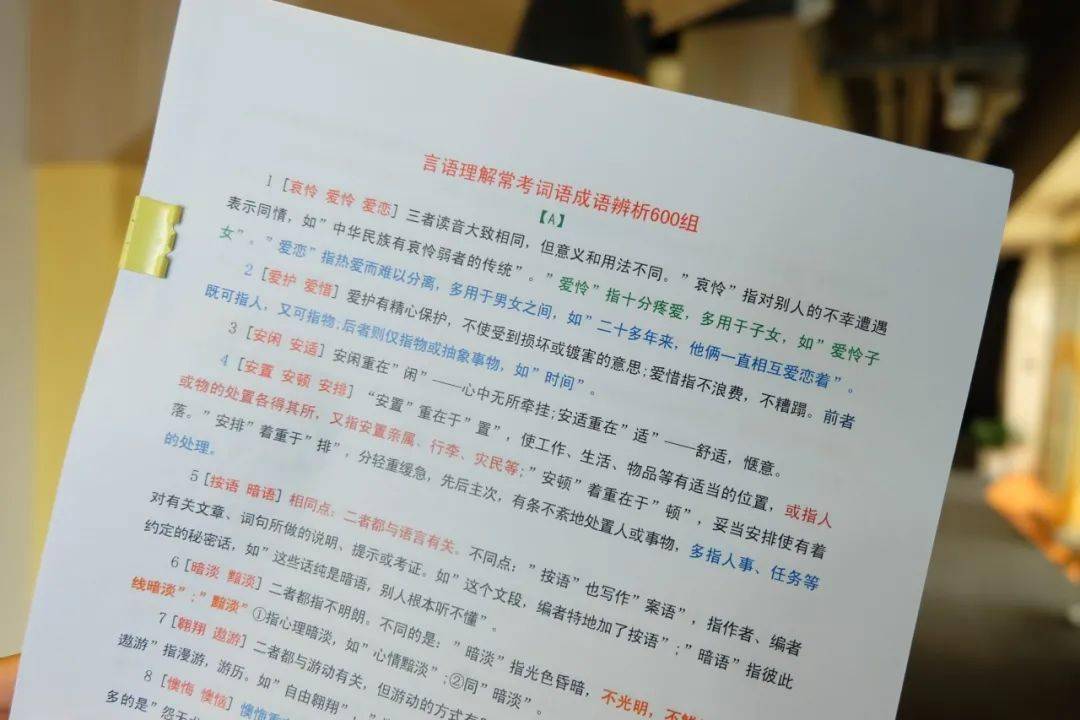 言语理解常考词语成语辨析600组
【A】
1［哀怜 爱怜 爱恋］三者读音大致相同，但意义和用法不同。"哀怜"指对别人的不幸遭遇
表示同情，如"中华民族有哀怜弱者的传统"。"爱怜"指十分疼爱，多用于子女，如"爱怜子
女"。"爱恋"指热爱而难以分离，多用于男女之间，如"二十多年来，他俩一直相互爱恋着"。
2［爱护 爱惜］爱护有精心保护，不使受到损坏或镀害的意思;爱惜指不浪费，不糟蹋。前者
既可指人，又可指物;后者则仅指物或抽象事物，如"时间"。
3［安闲 安适］安闲重在"闲"——心中无所牵挂;安适重在"适"——舒适，惬意。
4［安置 安顿 安排］"安置"重在于"置"，使工作、生活、物品等有适当的位置，或指人
或物的处置各得其所，又指安置亲属、行李、灾民等;"安顿"着重在于"顿"，妥当安排使有着
落。"安排"着重于"排"，分轻重缓急，先后主次，有条不紊地处置人或事物，多指人事、任务等
的处理。
5［按语 暗语］相同点：二者都与语言有关。不同点："按语"也写作"案语"，指作者、编者
对有关文章、词句所做的说明、提示或考证。如"这个文段，编者特地加了按语";"暗语"指彼此
约定的秘密话，如"这些话纯是暗语，别人根本听不懂"。
6［暗淡 黯淡］二者都指不明朗。不同的是："暗淡"指光色昏暗，不光明，不
线暗淡";"黯淡"①指心理暗淡，如"心情黯淡";②同"暗淡"。
7［翱翔 遨游］二者都与游动有关，但游动的方式有
遨游"指漫游，游历。如"自由翱翔"，
8［懊悔 懊恼］懊悔
多的是"怨天